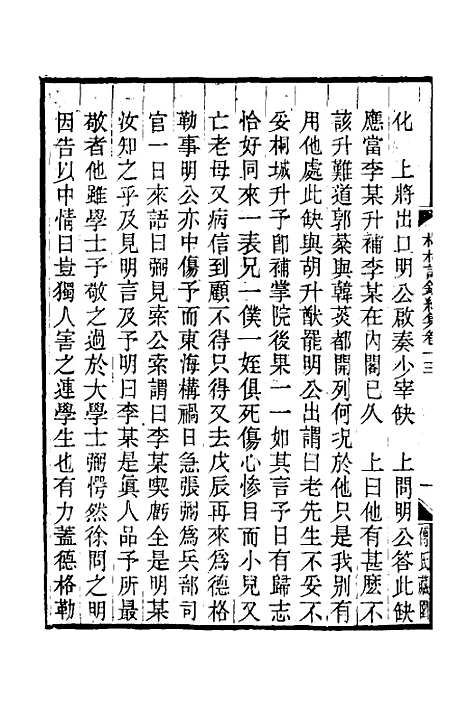 化　上將出口明公啟奏少宰缺　上問明公答此缺
應當李某升補李某在內閣已久　上曰他有甚麽不
該升難道郭棻與韓菼都開列何況於他只是我別有
用他處此缺與胡升猷罷明公出謂曰老先生不妥不
妥桐城升予卽補掌院後果一一如其言予日有歸志
恰好同來一表兄一僕一姪俱死傷心慘目而小兒又
亡老母又病信到顧不得只得又去戊辰再來爲德格
勒事明公亦中傷予而東海構禍日急張弻爲兵部司
官一日來語曰弻見索公索謂曰李某喫虧全是明某
汝知之乎及見明言及予明曰李某是眞人品予所最
敬者他雖學士予敬之過於大學士弻愕然徐問之明
因告以中情曰豈獨人害之連學生也有力蓋德格勒
榕村語錄續集卷十三
一
傅氏藏